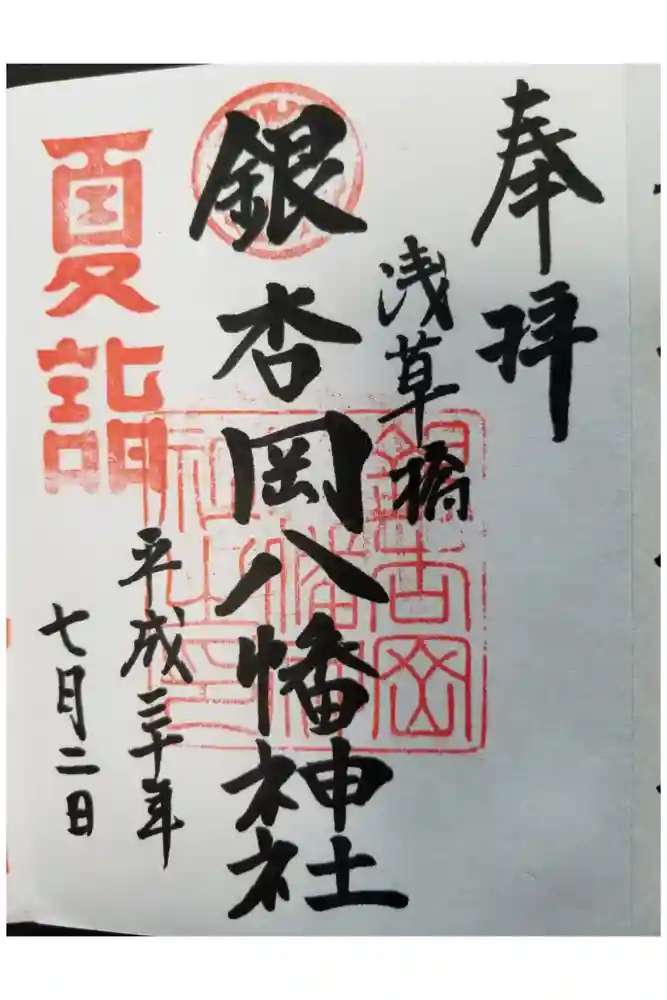 奉拝
浅草橋
銀杏岡八幡神社
平成三十年
七月二日
夏詣
銀杏岡八幡神社之印